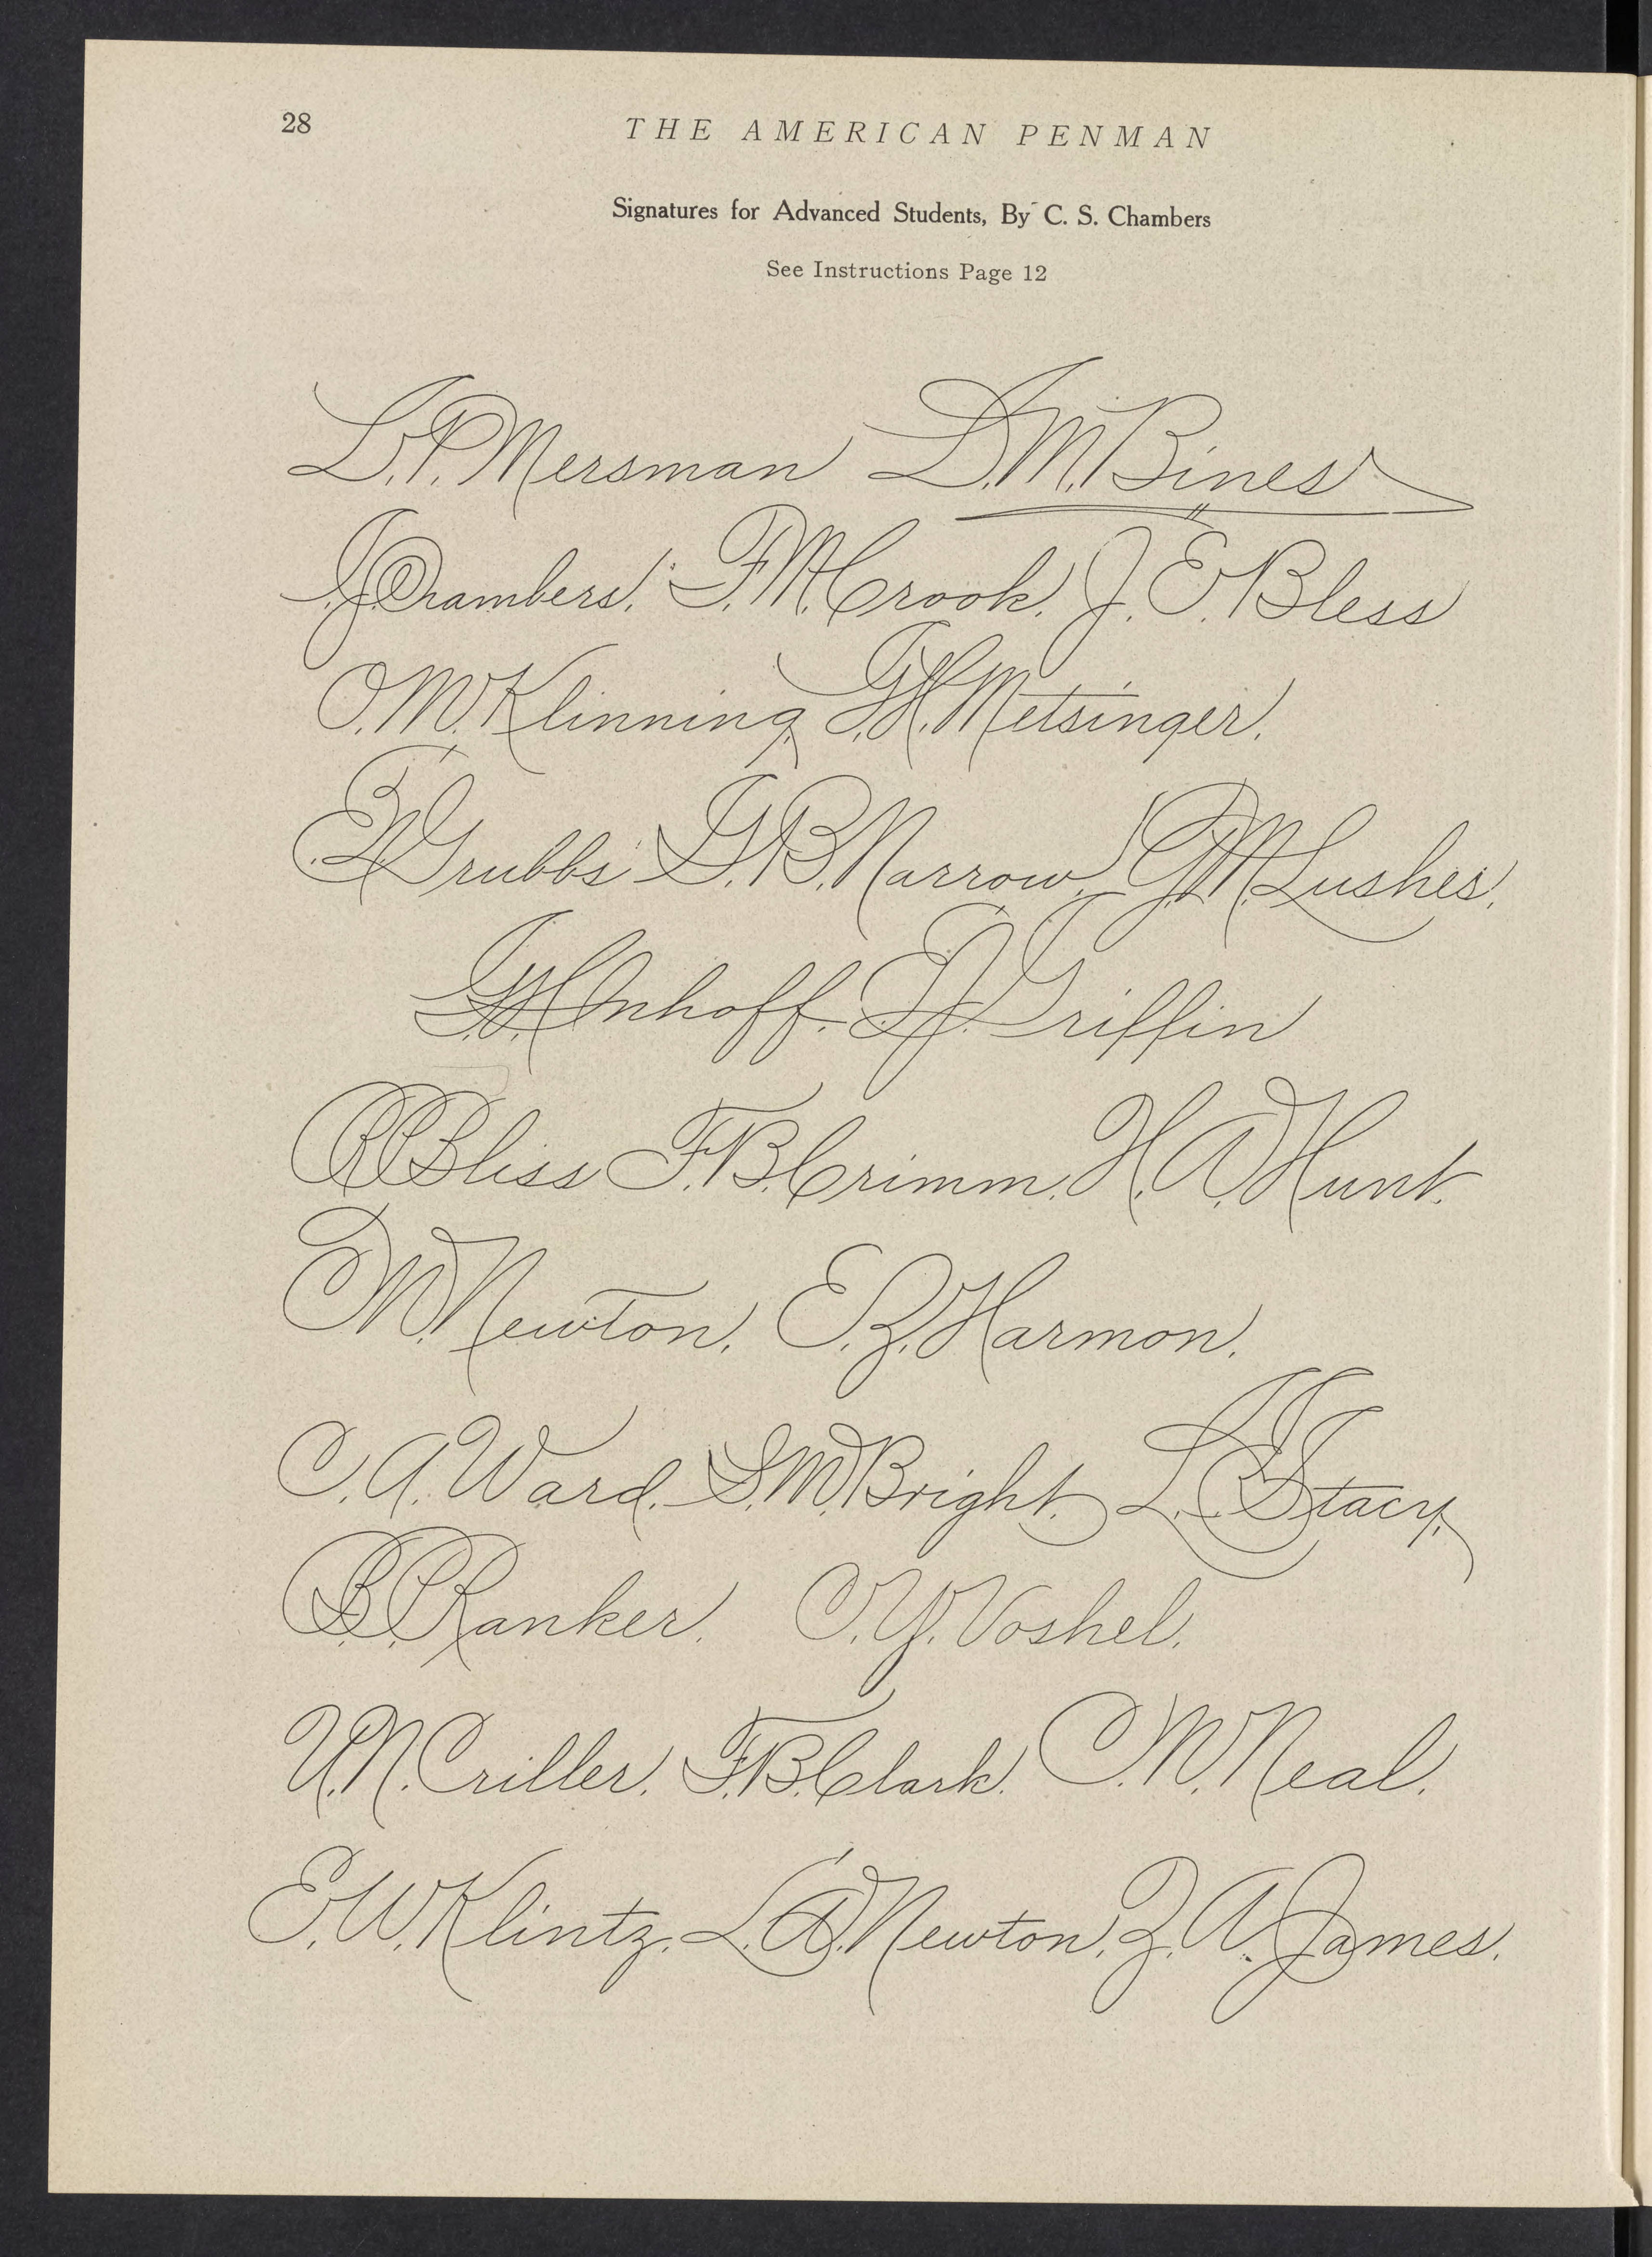 28
THE AMERICAN PENMAN
Signatures for Advanced Students, By C. S. Chambers
See Instructions Page 12
L. P. Mersman D. M. Bines
I. J. Chambers. F. M. Crook. J. E. Bless
O. W. Klinning. G. H. Metsinger.
E. N. Grubbs G. B. Narrow. G. M. Lushes.
G. H. Inhoff. E. J. Griffin
R. P. Bliss F. B. Crimm. H. A. Hunt.
C. W. Newton. E. Z. Harmon.
C. A. Ward. S. W. Bright. L. E. Stacy.
B. P. Ranker. C. Y. Voshel.
U. N. Criller. F. B. Clark. C. W. Neal.
E. W. Klintz. L. A. Newton. Z. A. James.